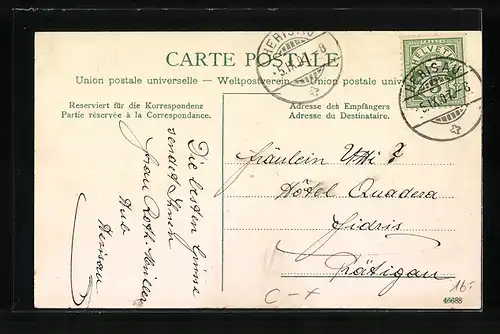 CARTE POSTALE
Union postale universelle. – Weltpostverein. – Unione postale universale.
HERISAU
HELVETIA
HERISAU
Reserviert für die Korrespondenz
Partie réservée à la Correspondance.
Adresse des Empfängers
Adresse du Destinataire.
Die besten Grüsse
sendet Ihnen
Frau Roth-Müller
Hub
Herisau
Fräulein
Hôtel Quadera
Fidris
Prätigau
C-x
16.-
46688